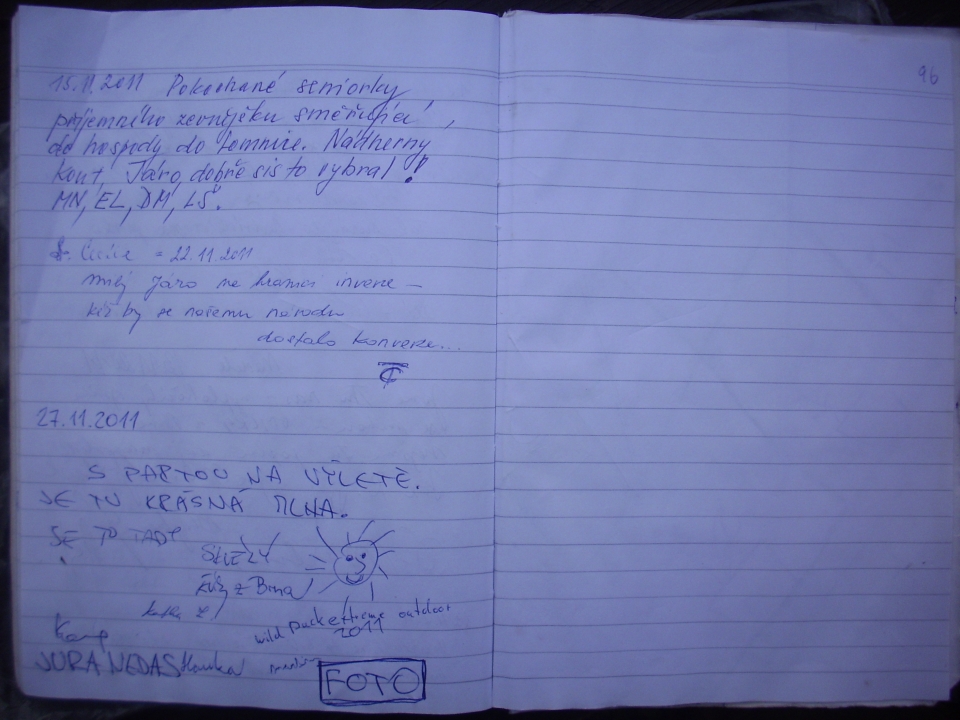 96
15.11.2011 Pokochané seniorky
příjemného zevnějšku směřující
do hospody do Lomnice. Nádherný
kout, Járo, dobře sis to vybral!
MN, EL, DM, LŠ.
22.11.2011
milý Járo na hranici inverze –
kéž by se našemu národu
dostalo konverze...
27.11.2011
S PARTOU NA VÝLETĚ.
JE TU KRÁSNÁ MLHA.
JE TO TADY
z Brna
wild Duck extreme outdoor
2011
JURA NEDAS Hanka
FOTO